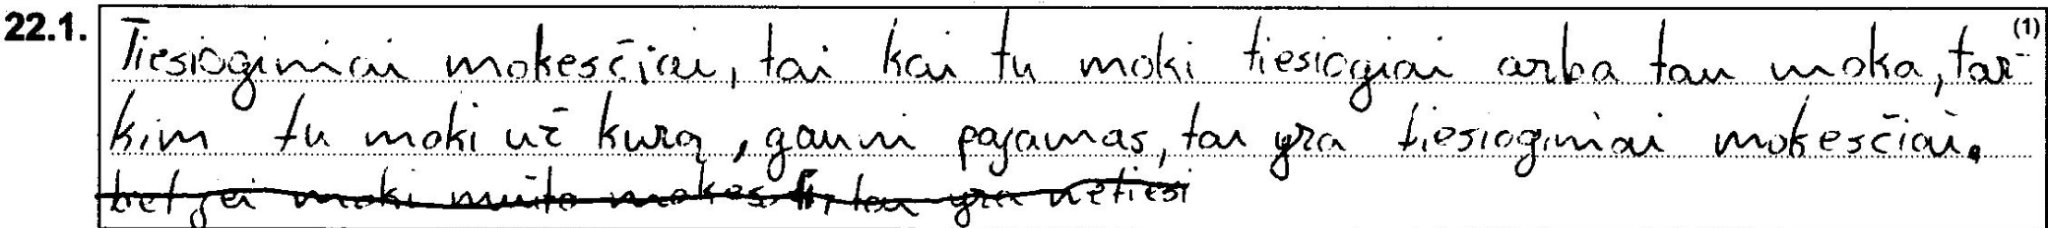 22.1. Tiesioginiai mokesčiai, tai kai tu moki tiesiogiai arba tau moka, tar- (1)
kim tu moki už kurą, gauni pajamas, tai yra tiesioginiai mokesčiai.
bet jei moki muito mokestį, tai yra netiesi